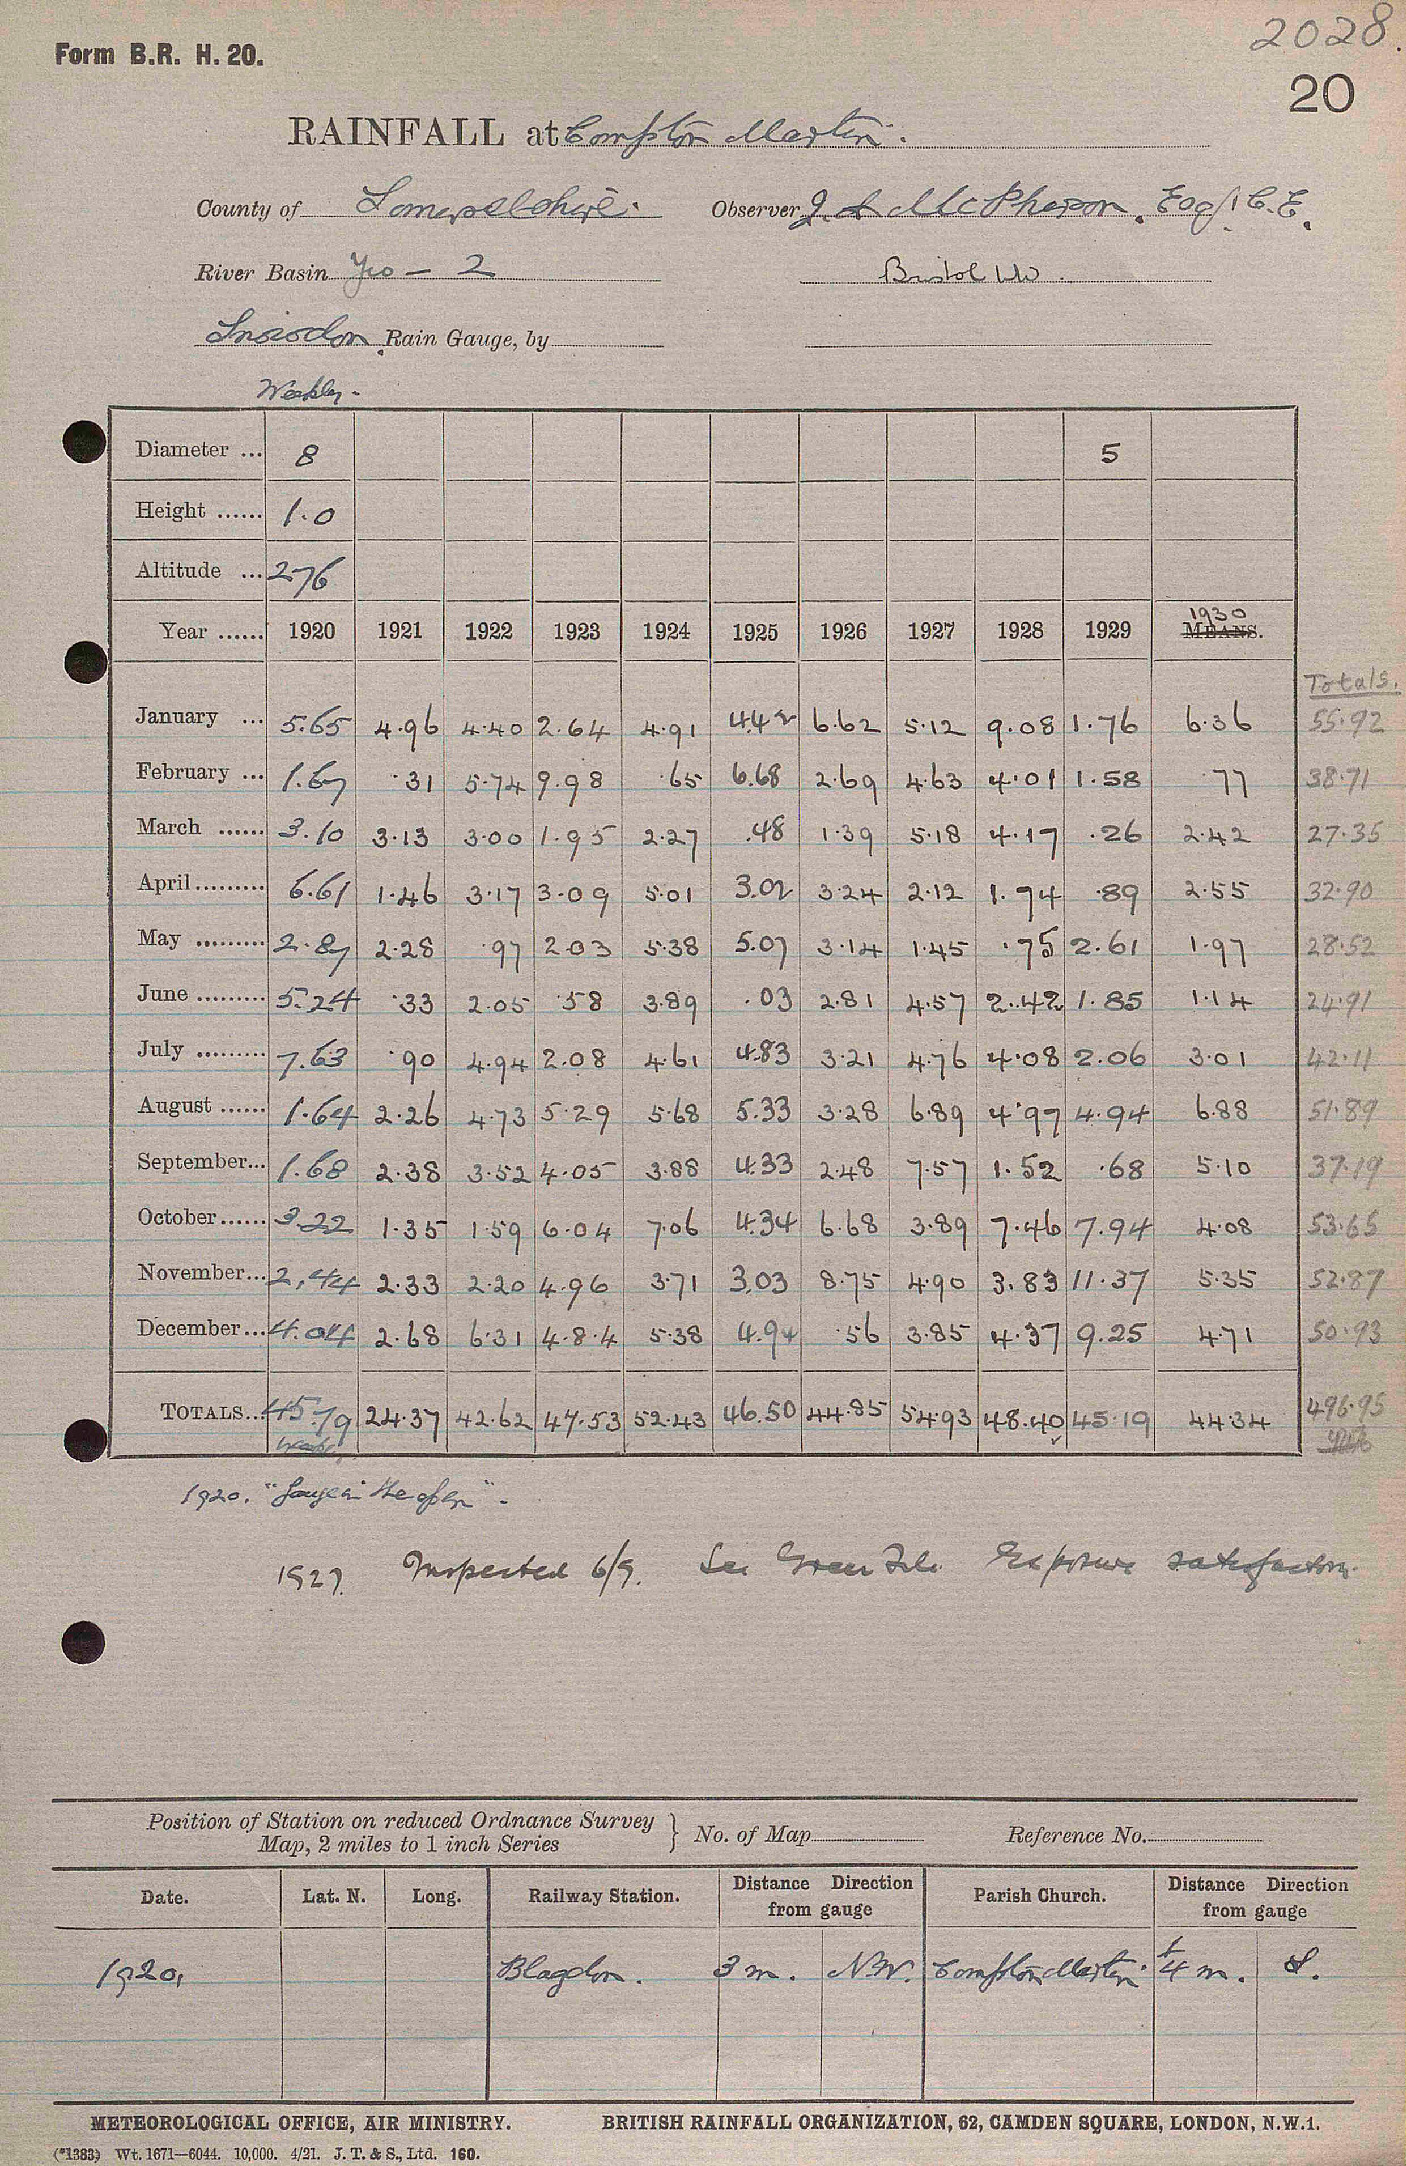 2028.
Form B.R. H. 20.
20
RAINFALL at Compton Martin.
County of Somersetshire. Observer J. A McPherson, Esq/. C.E.
River Basin Yeo — 2 Bristol WW.
Snowdon Rain Gauge, by
Weekly.
Diameter ... 8 5
Height ...... 1.0
Altitude ... 276
Year ...... 1920 1921 1922 1923 1924 1925 1926 1927 1928 1929 1930 MEANS.
Totals.
January ... 5.65 4.96 4.40 2.64 4.91 4.42 6.62 5.12 9.08 1.76 6.36 55.92
February ... 1.67 .31 5.74 9.98 .65 6.68 2.69 4.63 4.01 1.58 .77 38.71
March ...... 3.10 3.13 3.00 1.95 2.27 .48 1.39 5.18 4.17 .26 2.42 27.35
April......... 6.61 1.46 3.17 3.09 5.01 3.02 3.24 2.12 1.74 .89 2.55 32.90
May ......... 2.87 2.28 .97 2.03 5.38 5.07 3.14 1.45 .75 2.61 1.97 28.52
June ......... 5.24 .33 2.05 .58 3.89 .03 2.81 4.57 2.42 1.85 1.14 24.91
July ......... 7.63 .90 4.94 2.08 4.61 4.83 3.21 4.76 4.08 2.06 3.01 42.11
August ...... 1.64 2.26 4.73 5.29 5.68 5.33 3.28 6.89 4.97 4.94 6.88 51.89
September... 1.68 2.38 3.52 4.05 3.88 4.33 2.48 7.57 1.52 .68 5.10 37.19
October...... 3.22 1.35 1.59 6.04 7.06 4.34 6.68 3.89 7.46 7.94 4.08 53.65
November... 2.44 2.33 2.20 4.96 3.71 3.03 8.75 4.90 3.83 11.37 5.35 52.87
December... 4.04 2.68 6.31 4.84 5.38 4.94 .56 3.85 4.37 9.25 4.71 50.93
TOTALS... 45.79 24.37 42.62 47.53 52.43 46.50 44.85 54.93 48.40 45.19 44.34 496.95
1920. "Gauge in the open".
1927. Inspected 6/9. See Green File Exposure satisfactory.
Position of Station on reduced Ordnance Survey
Map, 2 miles to 1 inch Series } No. of Map Reference No.
Date. Lat. N. Long. Railway Station. Distance Direction from gauge Parish Church. Distance Direction from gauge
1920. Blagdon. 3 m. N.W. Compton Martin 1/4 m. S.
METEOROLOGICAL OFFICE, AIR MINISTRY. BRITISH RAINFALL ORGANIZATION, 62, CAMDEN SQUARE, LONDON, N.W.1.
(*1383) Wt. 1671—6044. 10,000. 4/21. J. T. & S., Ltd. 160.